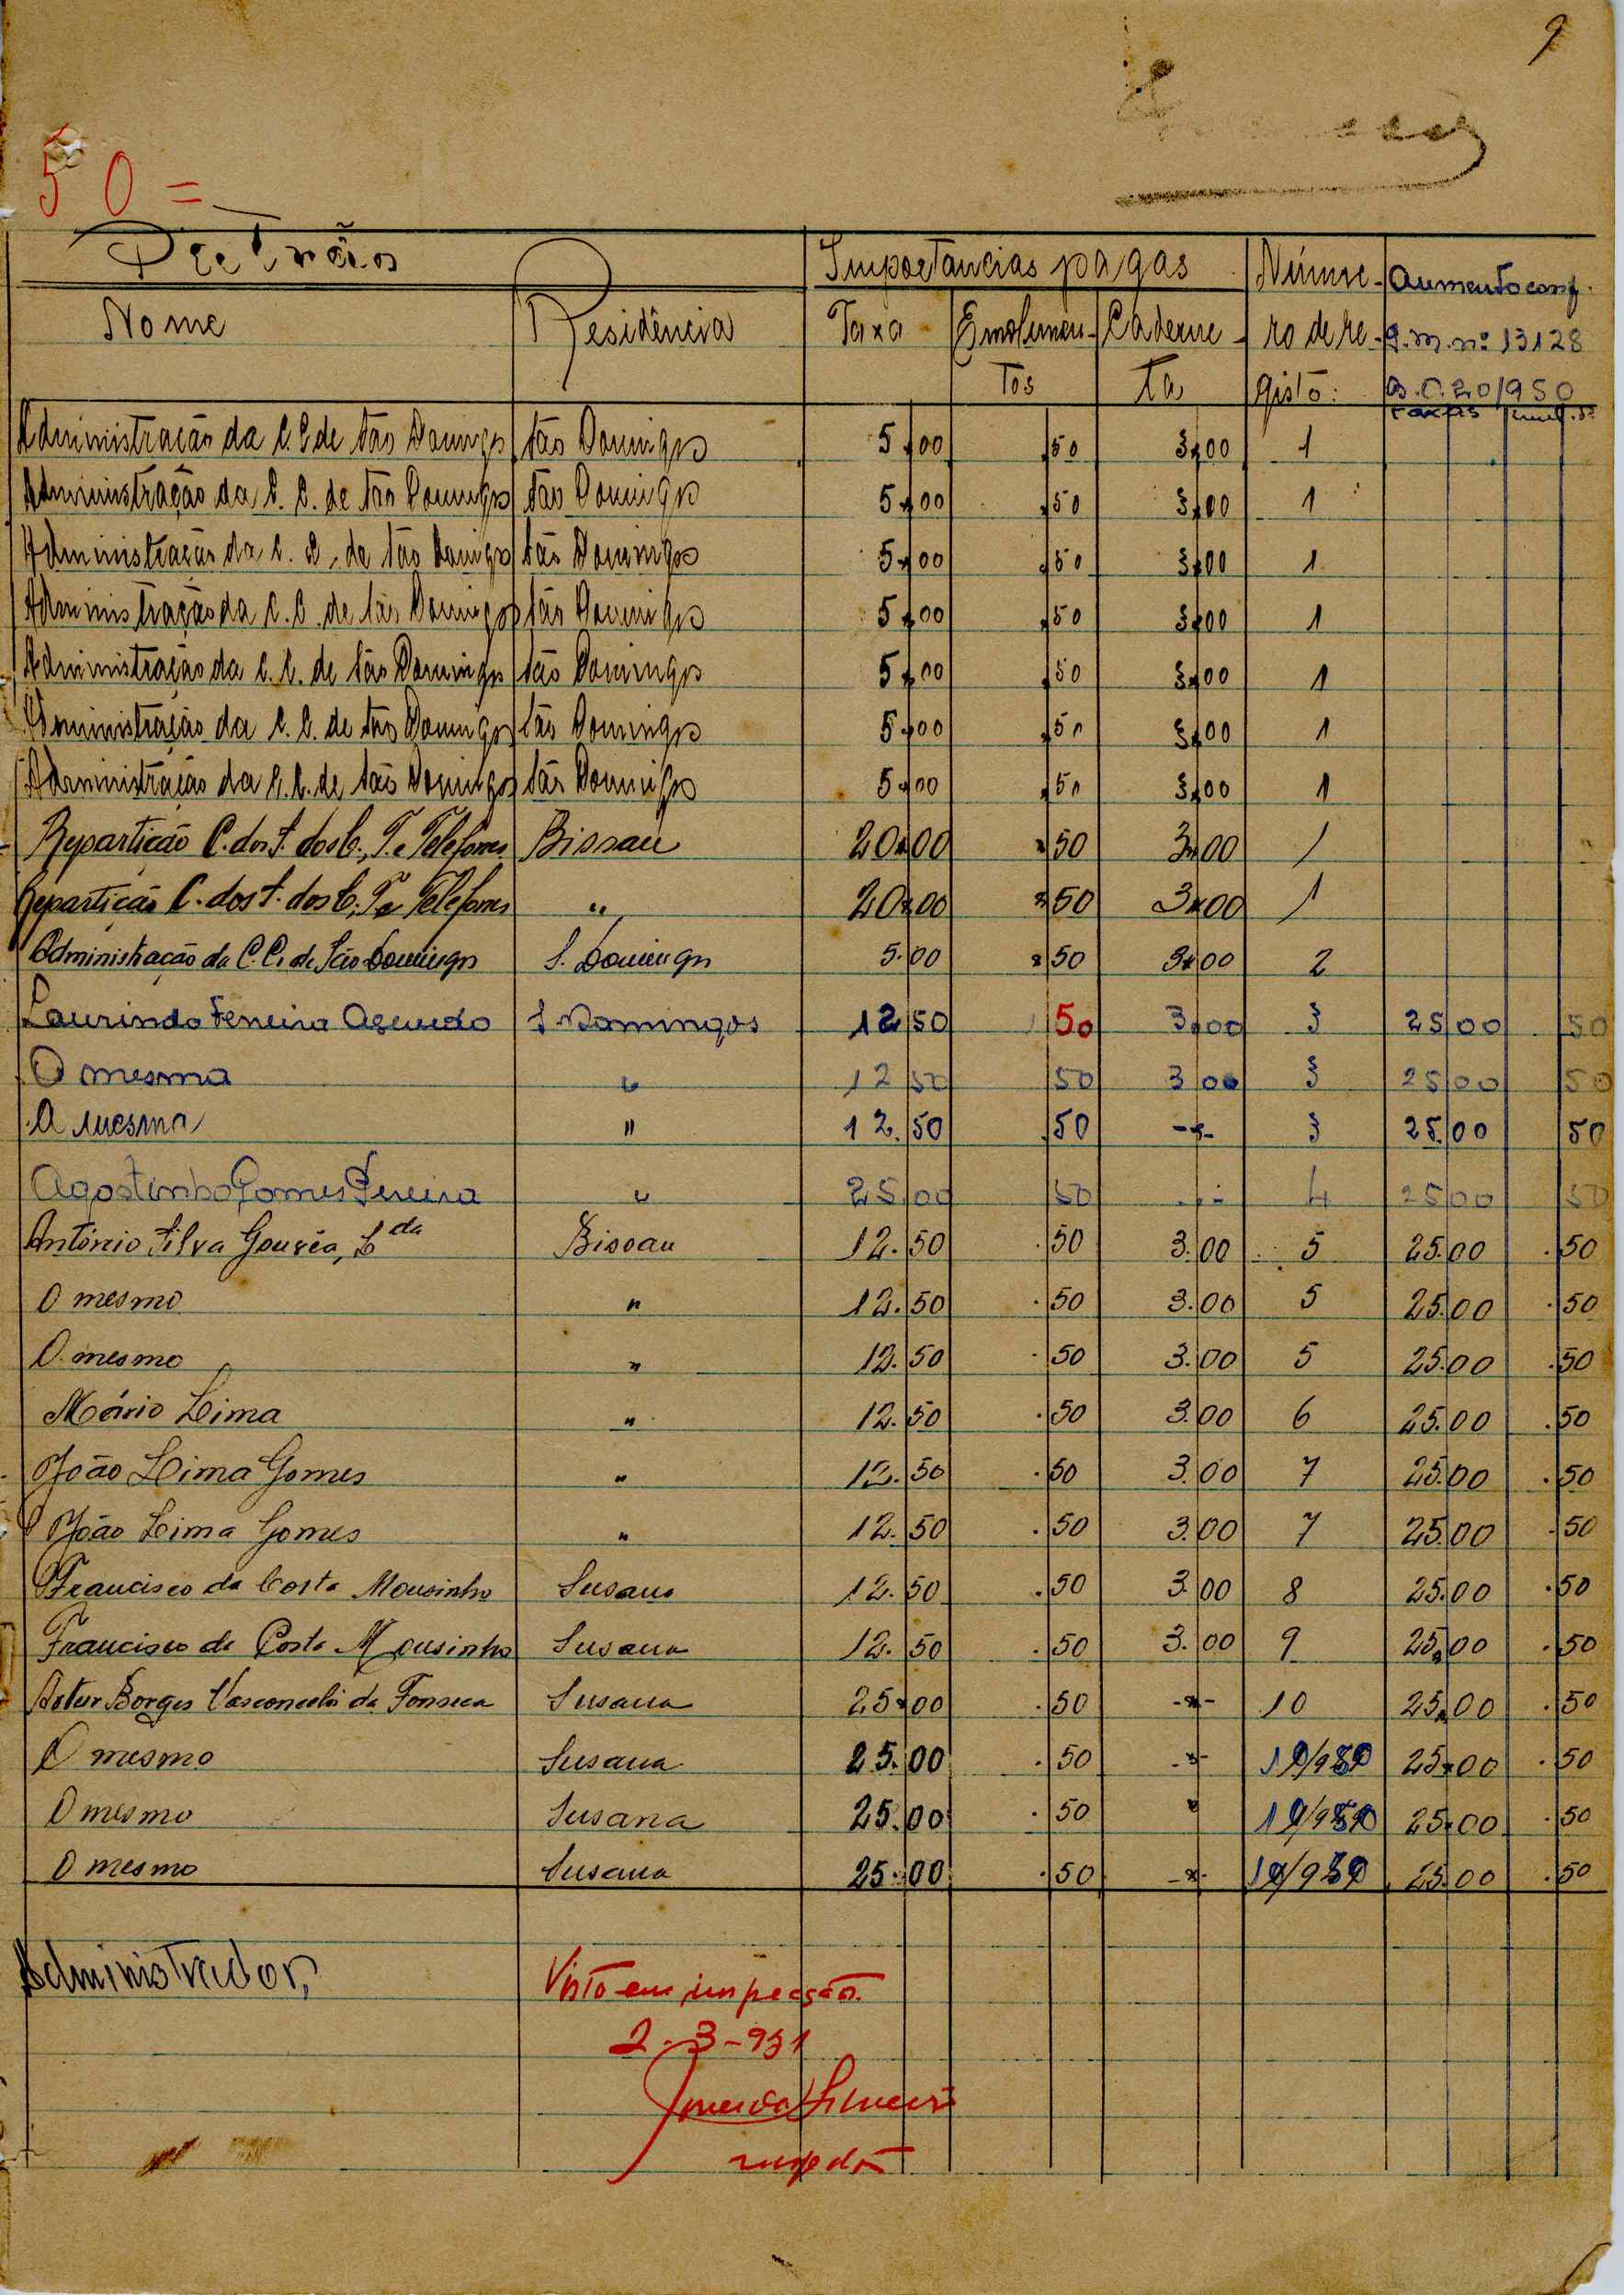 9
50=
Patrão
Importancias pagas Núme- Aumento conf.
Nome Residência Taxa Emolumen- Caderne- ro de re- P.M. nº 13128
tos ta gisto: B.O. 20/950
taxas
Administração da C. C. de São Domingos São Domingos 5,00 ,50 3,00 1
Administração da C. C. de São Domingos São Domingos 5,00 ,50 3,00 1
Administração da C. C. de São Domingos São Domingos 5,00 ,50 3,00 1
Administração da C. C. de São Domingos São Domingos 5,00 ,50 3,00 1
Administração da C. C. de São Domingos São Domingos 5,00 ,50 3,00 1
Administração da C. C. de São Domingos São Domingos 5,00 ,50 3,00 1
Administração da C. C. de São Domingos São Domingos 5,00 ,50 3,00 1
Repartição C. dos S. dos C., T. e Telefones Bissau 20,00 ,50 3,00 1
Repartição C. dos S. dos C., T. e Telefones " 20,00 ,50 3,00 1
Administração da C. C. de São Domingos S. Domingos 5.00 ,50 3,00 2
Laurindo Ferreira Azevedo S. Domingos 12 50 50 3.00 3 25 00 50
O mesmo " 12 50 50 3 00 3 25 00 50
O mesmo " 12.50 .50 -"- 3 25.00 50
Agostinho Gomes Pereira " 25.00 50 -"- 4 25 00 50
António Silva Gouvêa, Lda Bissau 12.50 .50 3.00 5 25.00 .50
O mesmo " 12.50 .50 3.00 5 25.00 .50
O mesmo " 12.50 .50 3.00 5 25.00 .50
Mário Lima " 12.50 .50 3.00 6 25.00 .50
João Lima Gomes " 12.50 .50 3.00 7 25.00 .50
João Lima Gomes " 12.50 .50 3.00 7 25.00 .50
Francisco da Costa Mousinho Susana 12.50 .50 3.00 8 25.00 .50
Francisco da Costa Mousinho Susana 12.50 .50 3.00 9 25,00 .50
Artur Borges Vasconcelos da Fonseca Susana 25.00 .50 -"- 10 25,00 .50
O mesmo Susana 25.00 .50 -"- 25.00 .50
O mesmo Susana 25.00 .50 " 25.00 .50
O mesmo Susana 25.00 .50 -"- 25.00 .50
Administrador,
Visto em inspecção.
2-3-951